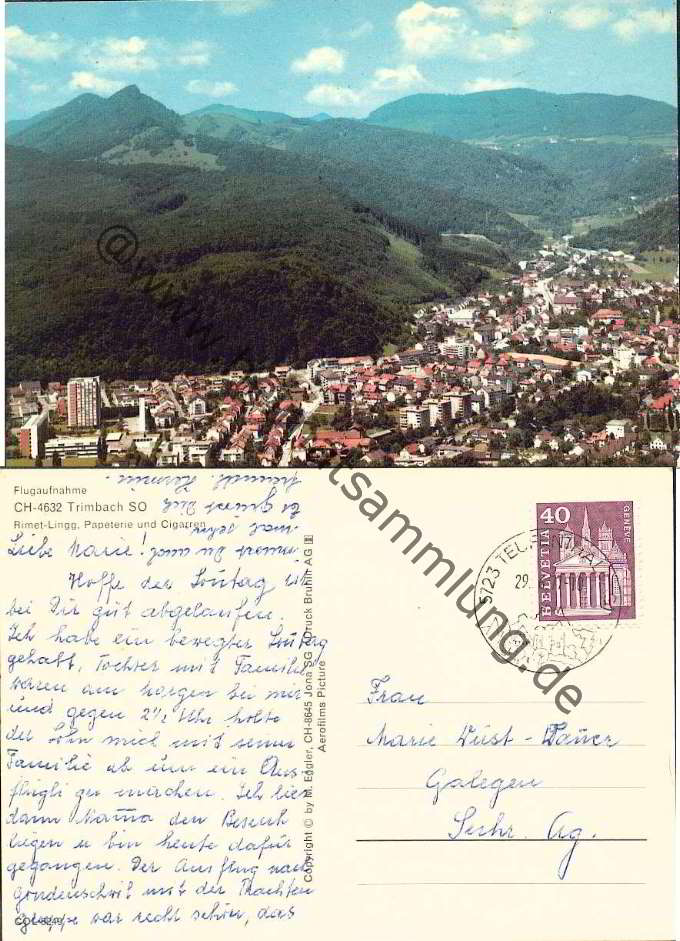 @www.ansichtskartensammlung.de
Flugaufnahme
CH-4632 Trimbach SO
Rimet-Lingg, Papeterie und Cigarren
Liebe Marie!
Hoffe der Sontag ist
bei Dir gut abgelaufen.
Ich habe ein bewegter Sontag
gehabt, Tochter mit Familie
waren am morgen bei mir
und gegen 2½ Uhr holte
der Sohn mich mit seiner
Familie ab um ein Aus
flügli zu machen. Ich liess
dann Mama den Besuch
liegen u bin heute dafür
gegangen. Der Ausflug nach
mit der Trachten
gruppe war recht schön, das
COL 5249
Copyright © by M. Eggler, CH-8645 Jona SG Druck Bruhin AG
Aerofilms Picture
40
HELVETIA
GENÈVE
5723
29.
Frau
Marie Wüst-
Galegen
Suhr. Ag.